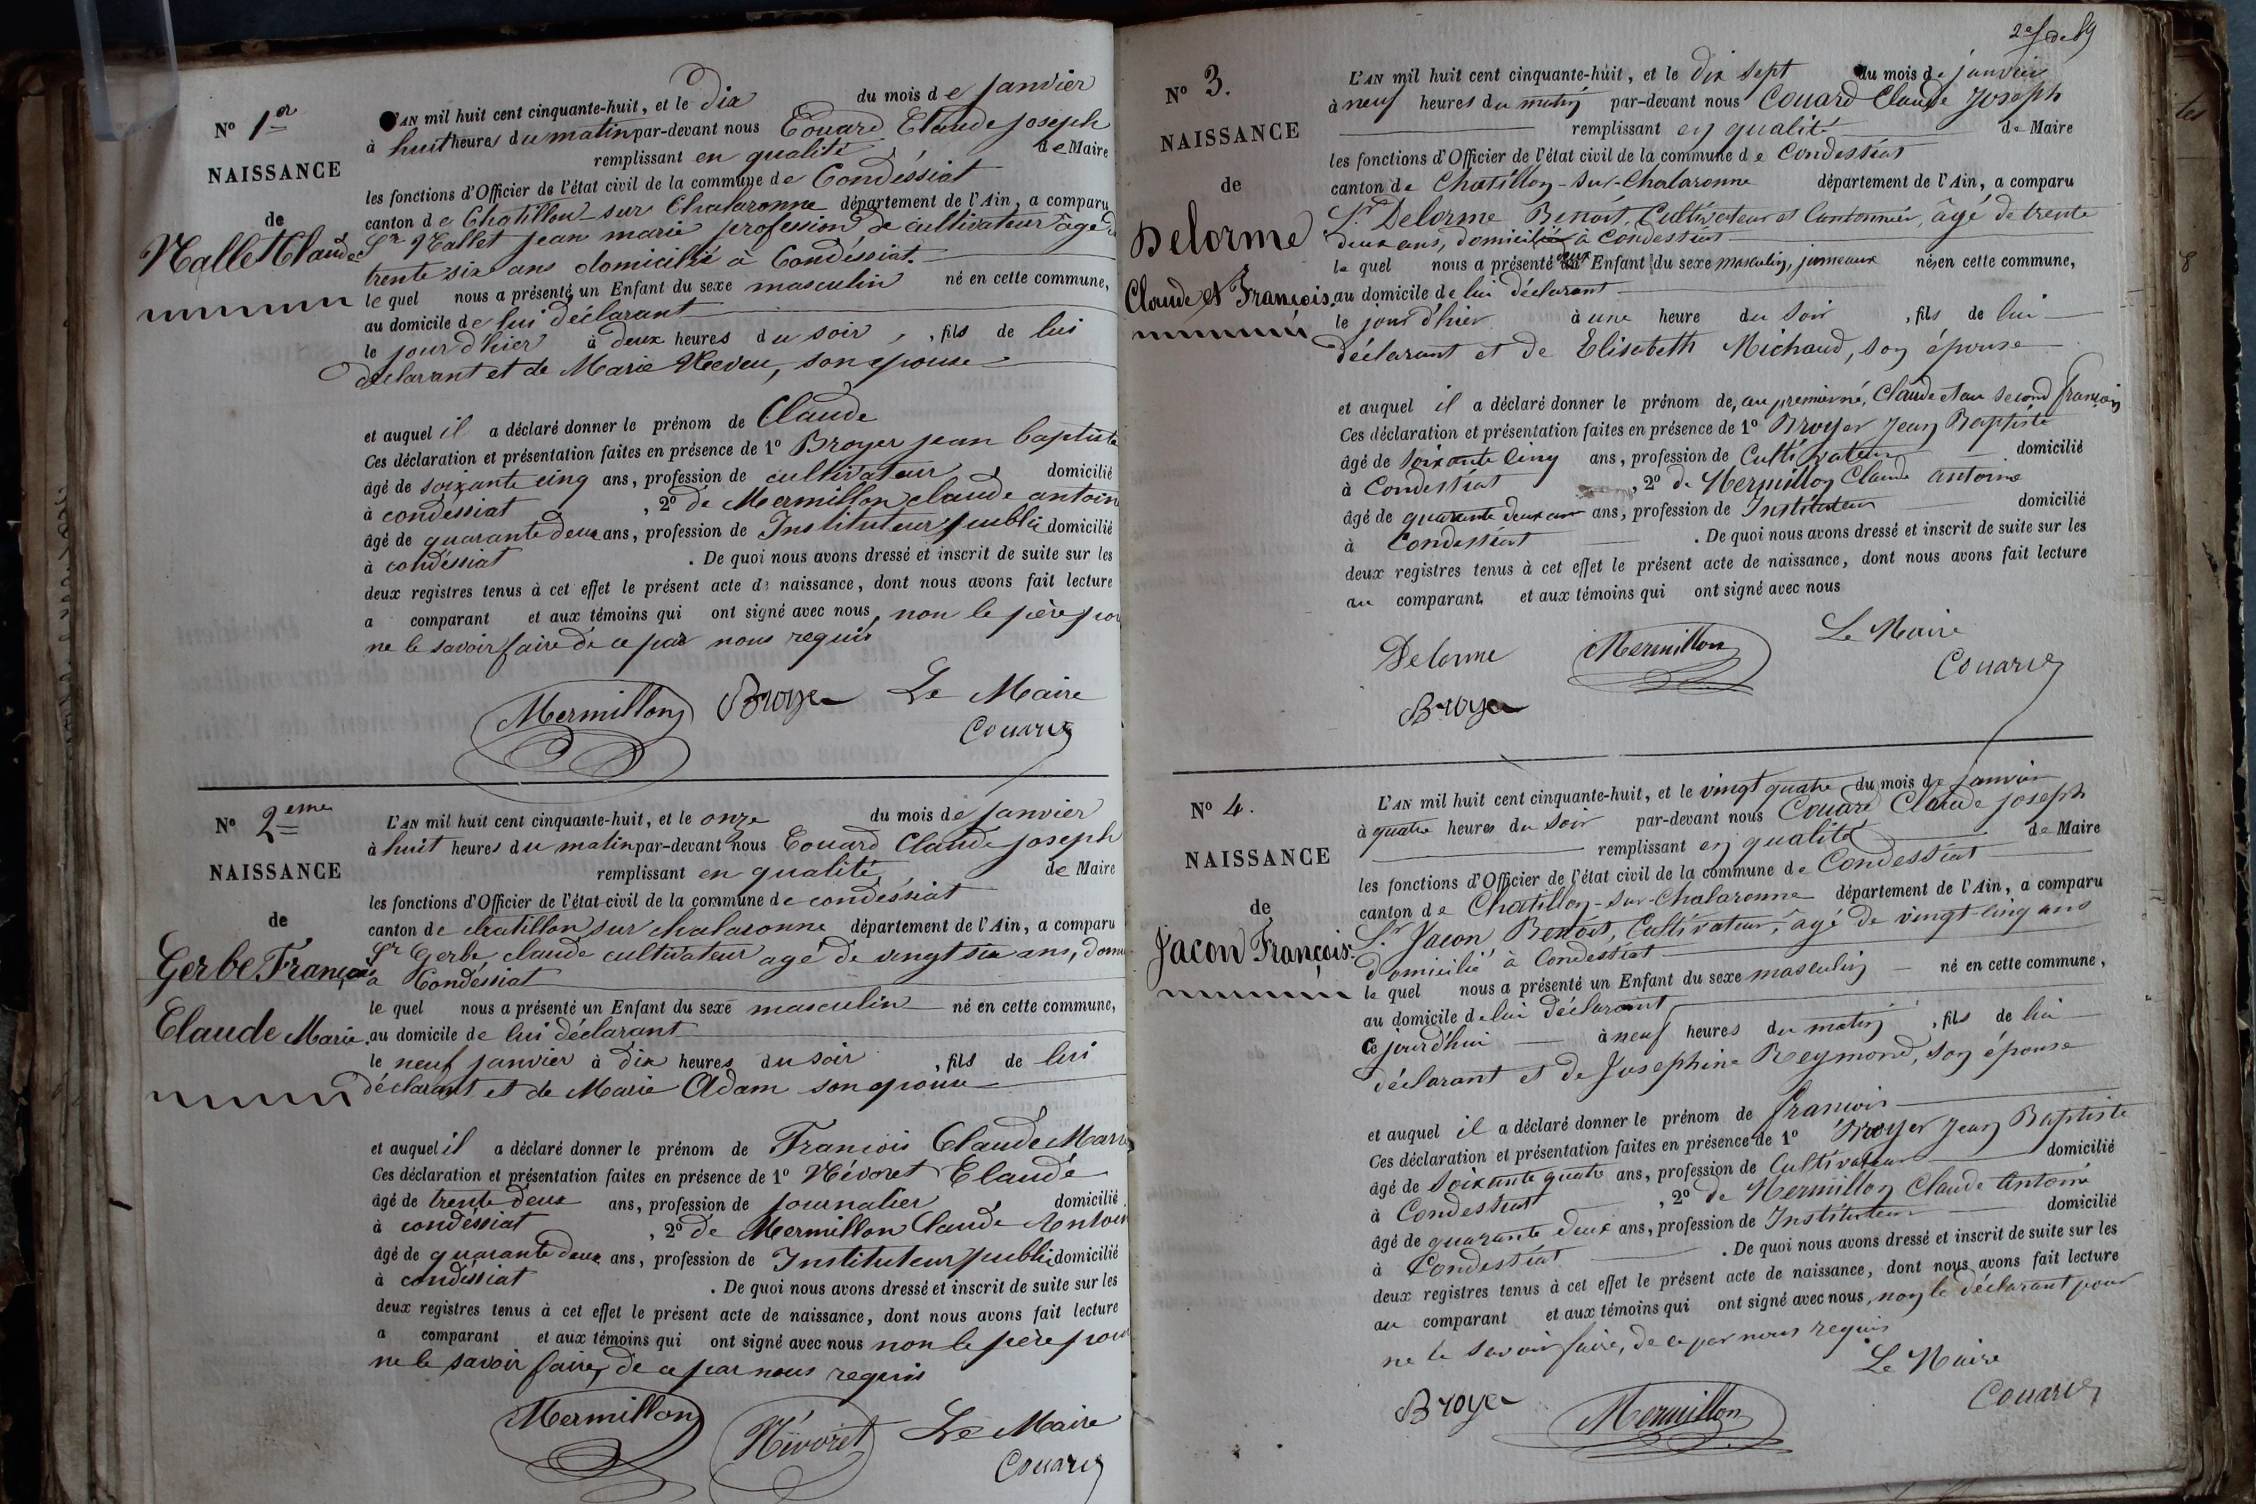 No 1er
NAISSANCE
de
Nallet Claude
L'AN mil huit cent cinquante-huit, et le dix du mois de janvier
à huit heures du matin par-devant nous Couard Claude joseph
remplissant en qualité de Maire
les fonctions d'Officier de l'état civil de la commune de Condéssiat
canton de Châtillon sur Chalaronne département de l'Ain, a comparu
Sr Nallet jean marie profession de cultivateur âgé de
trente six ans domicilié à Condéssiat.
le quel nous a présenté un Enfant du sexe masculin né en cette commune,
au domicile de lui déclarant
le jour d'hier à deux heures du soir, fils de lui
déclarant et de Marie Neveu, son épouse
et auquel il a déclaré donner le prénom de Claude
Ces déclaration et présentation faites en présence de 1o Broyer jean baptiste
âgé de soixante cinq ans, profession de cultivateur domicilié
à condéssiat, 2o de Mermillon claude antoine
âgé de quarante deux ans, profession de Instituteur public domicilié
à condéssiat. De quoi nous avons dressé et inscrit de suite sur les
deux registres tenus à cet effet le présent acte de naissance, dont nous avons fait lecture
a comparant et aux témoins qui ont signé avec nous, non le père pour
ne le savoir faire de ce par nous requis
Mermillon Broyer Le Maire
Couard
No 2eme
NAISSANCE
de
Gerbe François
Claude Marie.
L'AN mil huit cent cinquante-huit, et le onze du mois de janvier
à huit heures du matin par-devant nous Couard Claude joseph
remplissant en qualité de Maire
les fonctions d'Officier de l'état civil de la commune de condéssiat
canton de chatillon sur chalaronne département de l'Ain, a comparu
Sr Gerbe claude cultivateur agé de vingt six ans, domi
à Condéssiat
le quel nous a présenté un Enfant du sexe masculin né en cette commune,
au domicile de lui déclarant
le neuf janvier à dix heures du soir, fils de lui
déclarant et de Marie Adam son épouse
et auquel il a déclaré donner le prénom de Francois Claude Marie
Ces déclaration et présentation faites en présence de 1o Névoret Claude
âgé de trente deux ans, profession de journalier domicilié
à condéssiat, 2o de Mermillon Claude Antoin
âgé de quarante deux ans, profession de Instituteur public domicilié
à condéssiat. De quoi nous avons dressé et inscrit de suite sur les
deux registres tenus à cet effet le présent acte de naissance, dont nous avons fait lecture
a comparant et aux témoins qui ont signé avec nous non le père pour
ne le savoir faire, de ce par nous requis
Mermillon Névoret Le Maire
Couard
2e f de 89
No 3.
NAISSANCE
de
Delorme
Claude et François.
L'AN mil huit cent cinquante-huit, et le dix sept du mois de janvier
à neuf heures du matin par-devant nous Couard Claude Joseph
remplissant en qualité de Maire
les fonctions d'Officier de l'état civil de la commune de Condessiat
canton de Chatillon-sur-Chalaronne département de l'Ain, a comparu
Sr Delorme Benoît, Cultivateur et Cantonnier, âgé de trente
deux ans, domicilié à Condessiat
le quel nous a présenté deux Enfant du sexe masculin, jumeaux nés en cette commune,
au domicile de lui déclarant
le jour d'hier à une heure du soir, fils de lui
déclarant et de Elisabeth Michaud, son épouse
et auquel il a déclaré donner le prénom de, au premier né, Claude et au second françois
Ces déclaration et présentation faites en présence de 1o Broyer Jean Baptiste
âgé de soixante cinq ans, profession de Cultivateur domicilié
à Condessiat, 2o de Mermillon Claude antoine
âgé de quarante deux ans ans, profession de Instituteur domicilié
à Condessiat. De quoi nous avons dressé et inscrit de suite sur les
deux registres tenus à cet effet le présent acte de naissance, dont nous avons fait lecture
au comparant et aux témoins qui ont signé avec nous
Delorme Mermillon Le Maire
Couard
Broyer
No 4.
NAISSANCE
de
Jacon François.
L'AN mil huit cent cinquante-huit, et le vingt quatre du mois de Janvier
à quatre heures du soir par-devant nous Couard Claude joseph
remplissant en qualité de Maire
les fonctions d'Officier de l'état civil de la commune de Condessiat
canton de Chatillon-sur-Chalaronne département de l'Ain, a comparu
Sr Jacon Benoît, Cultivateur, âgé de vingt-cinq ans
domicilié à Condessiat
le quel nous a présenté un Enfant du sexe masculin né en cette commune,
au domicile de lui déclarant
Ce jourd'hui à neuf heures du matin, fils de lui
déclarant et de Josephine Reymond, son épouse
et auquel il a déclaré donner le prénom de francois
Ces déclaration et présentation faites en présence de 1o Broyer Jean Baptiste
âgé de soixante quatre ans, profession de Cultivateur domicilié
à Condessiat, 2o de Mermillon Claude Antoine
âgé de quarante deux ans, profession de Instituteur domicilié
à Condessiat. De quoi nous avons dressé et inscrit de suite sur les
deux registres tenus à cet effet le présent acte de naissance, dont nous avons fait lecture
au comparant et aux témoins qui ont signé avec nous, non le déclarant pour
ne le savoir faire, de ce par nous requis
Le Maire
Broyer Mermillon Couard